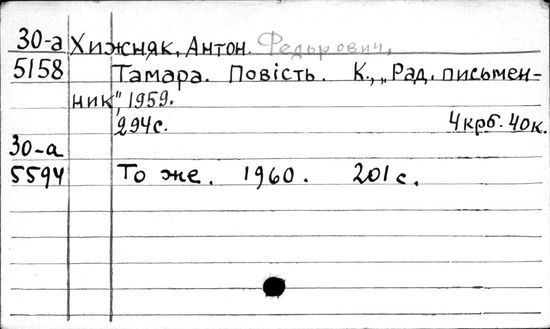 30-а Хижняк, Антон. Федорович,
5158 Тамара. Повість. К., „Рад. письмен-
ник", 1959.
294с. 4крб. 40к.
30-а
5594 То же. 1960. 201 с.